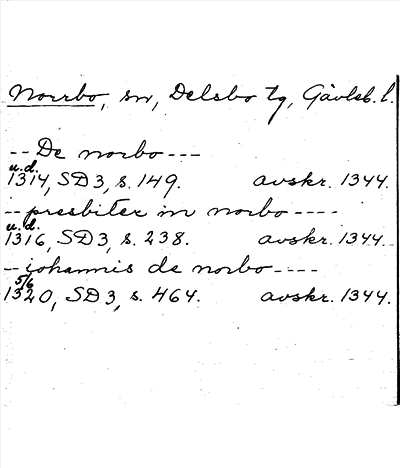 Norrbo, sn, Delsbo tg, Gävleb. l.
-- De norbo ---
u.d.
1314, SD 3, s. 149. avskr. 1344.
-- presbiter in norbo ----
u.d.
1316, SD 3, s. 238. avskr. 1344.
-- johannis de norbo ----
5/6
1320, SD 3, s. 464. avskr. 1344.